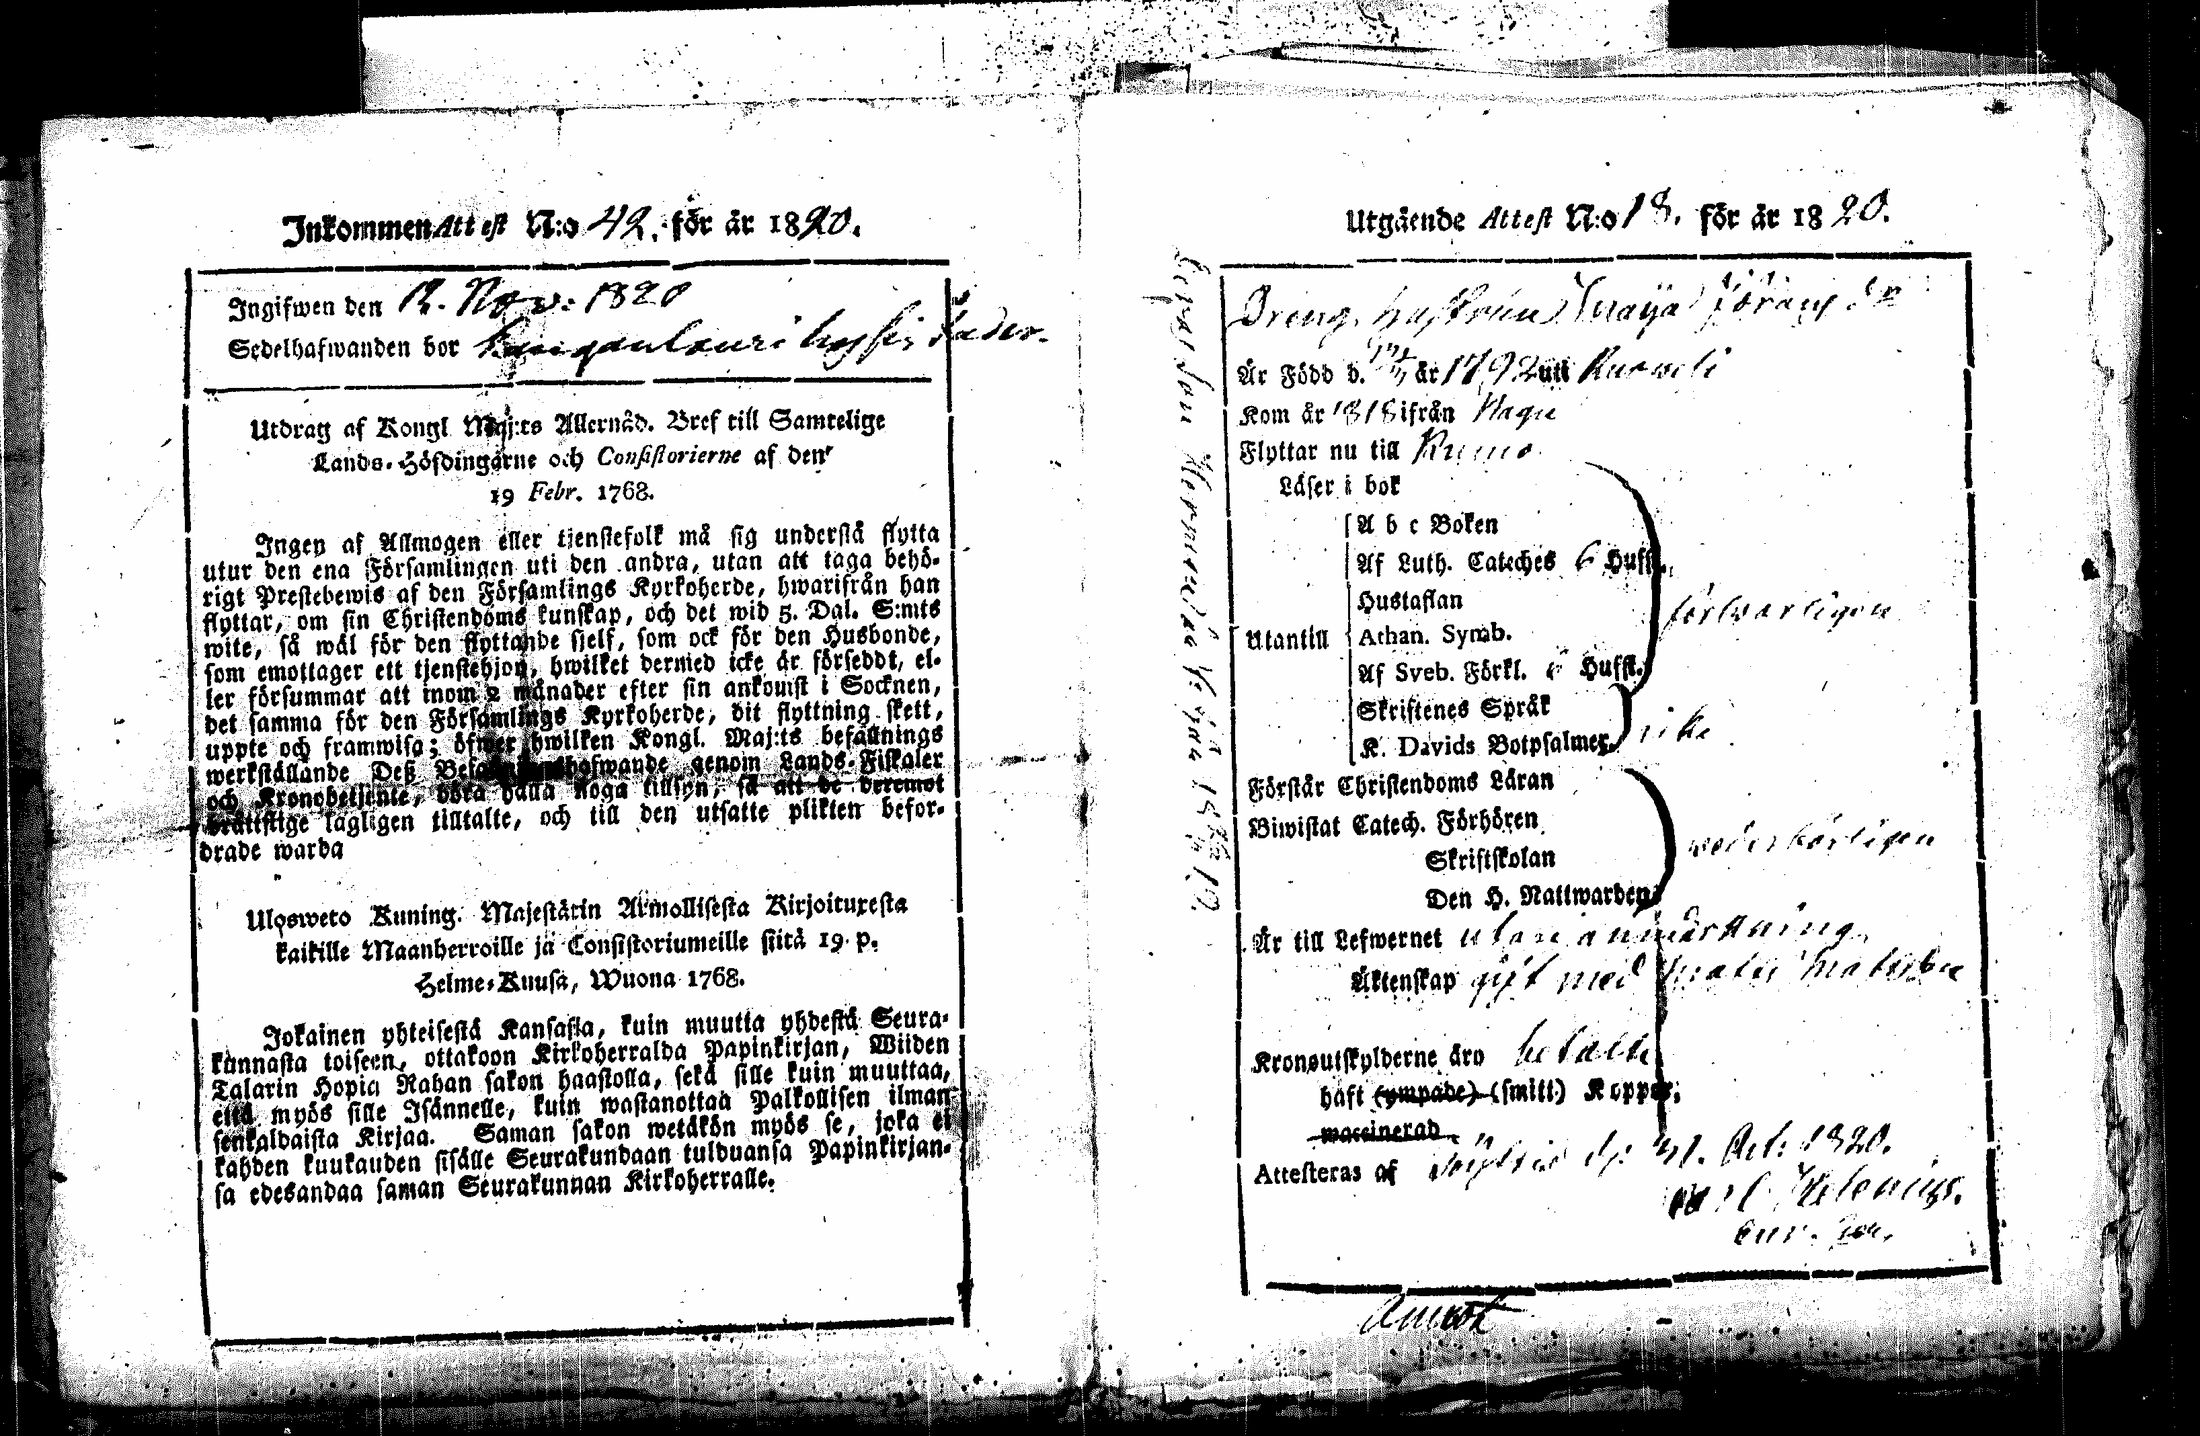 Inkommen Attest N:o 42. för år 1820.
Ingifwen den 12. Nov: 1820
Sedelhafwanden bor
Utdrag af Kongl Maj:ts Allernåd. Bref till Samtelige
Lands-Höfdingarne och Consistorierne af den
19 Febr. 1768.
Ingen af Allmogen eller tjenstefolk må sig understå flytta
utur den ena Församlingen uti den andra, utan att taga behö-
rigt Prestebewis af den Församlings Kyrkoherde, hwarifrån han
flyttar, om sin Christendoms kunskap, och det wid 5. Dal. S:mts
wite, så wäl för den flyttande sjelf, som ock för den Husbonde,
som emottager ett tjenstehjon, hwilket dermed icke är försedt, el-
ler försummar att inom 2 månader efter sin ankomst i Socknen,
det samma för den Församlings Kyrkoherde, dit flyttning skett,
uppte och framwisa; öfwer hwilken Kongl. Maj:ts befallnings
werkställande Deß Befallningshafwande genom Lands-Fiskaler
och Kronobetjente, böra hålla noga tillsyn, så att de deremot
bråttslige lagligen tilltalte, och till den utsatte plikten befor-
drade warda
Ulosweto Kuning. Majestätin Armollisesta Kirjoituxesta
kaikille Maanherroille ja Consistoriumeille siitä 19 p.
Helme-Kuusa, Wuona 1768.
Jokainen yhteisestä Kansasta, kuin muutta yhdestä Seura-
kunnasta toiseen, ottakoon Kirkoherralda Papinkirjan, Wiiden
Talarin Hopia Rahan sakon haastolla, sekä sille kuin muuttaa,
että myös sille Isännelle, kuin wastanottaa Palkollisen ilman
senkaldaista Kirjaa. Saman sakon wetäkön myös se, joka ei
kahden kuukauden sisälle Seurakundaan tulduansa Papinkirjan-
sa edesandaa saman Seurakunnan Kirkoherralle.
Utgående Attest N:o 18. för år 1820.
Dreng. hustrun Maija Jörans dr
Är Född d. år 1792 uti
Kom år 1818 ifrån Nagu
Flyttar nu till Rumo
Läser i bok
A b c Boken
Af Luth. Cateches 6 Hufst.
Hustaflan
Utantill Athan. Symb.
Af Sveb. Förkl. 6 Hufst.
försvarligen
Skriftenes Språk
K. Davids Botpsalmer
icke
Förstår Christendoms Läran
Biwistat Catech. Förhören
Skriftskolan
Den H. Nattwarden
wederbörligen
Är till Lefwernet utan anmärkning
Äktenskap gift med Matts Matsson
Kronoutskylderne äro betalte
haft (ympade) (smitt) Koppor,
waccinerad
Attesteras af d: 31. Oct: 1820.
Carl Helenius.